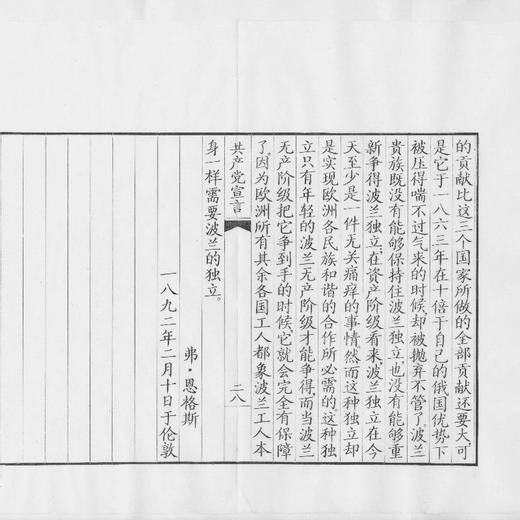 的贡献比这三个国家所做的全部贡献还要大，可
是它于一八六三年在十倍于自己的俄国优势下
被压得喘不过气来的时候，却被抛弃不管了。波兰
贵族既没有能够保持住波兰独立，也没有能够重
新争得波兰独立；在资产阶级看来，波兰独立在今
天至少是一件无关痛痒的事情。然而这种独立却
是实现欧洲各民族和谐的合作所必需的。这种独
立只有年轻的波兰无产阶级才能争得，而当波兰
无产阶级把它争到手的时候，它就会完全有保障
了。因为欧洲所有其余各国工人都象波兰工人本
共产党宣言 二八
身一样需要波兰的独立。
弗·恩格斯
一八九二年二月十日于伦敦